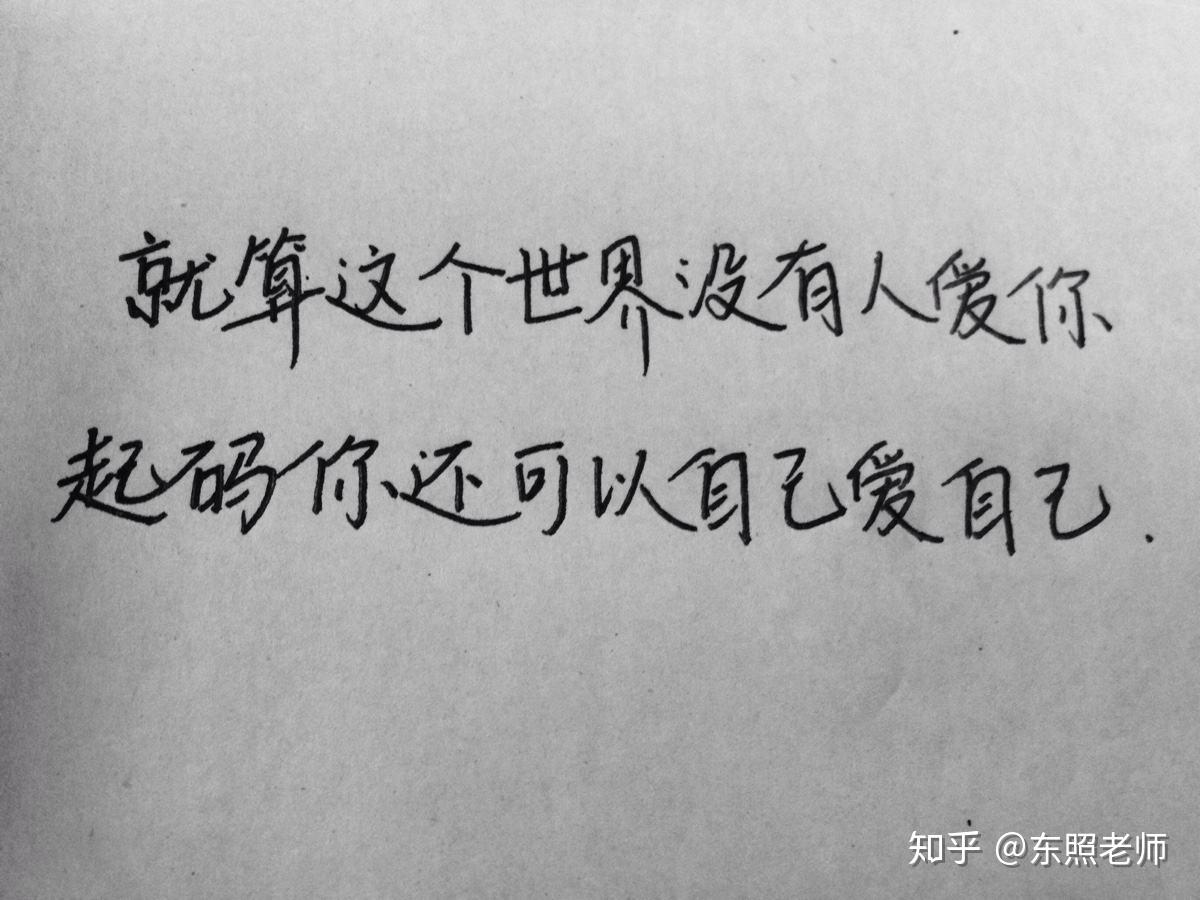 就算这个世界没有人爱你
起码你还可以自己爱自己.
知乎 @东照老师